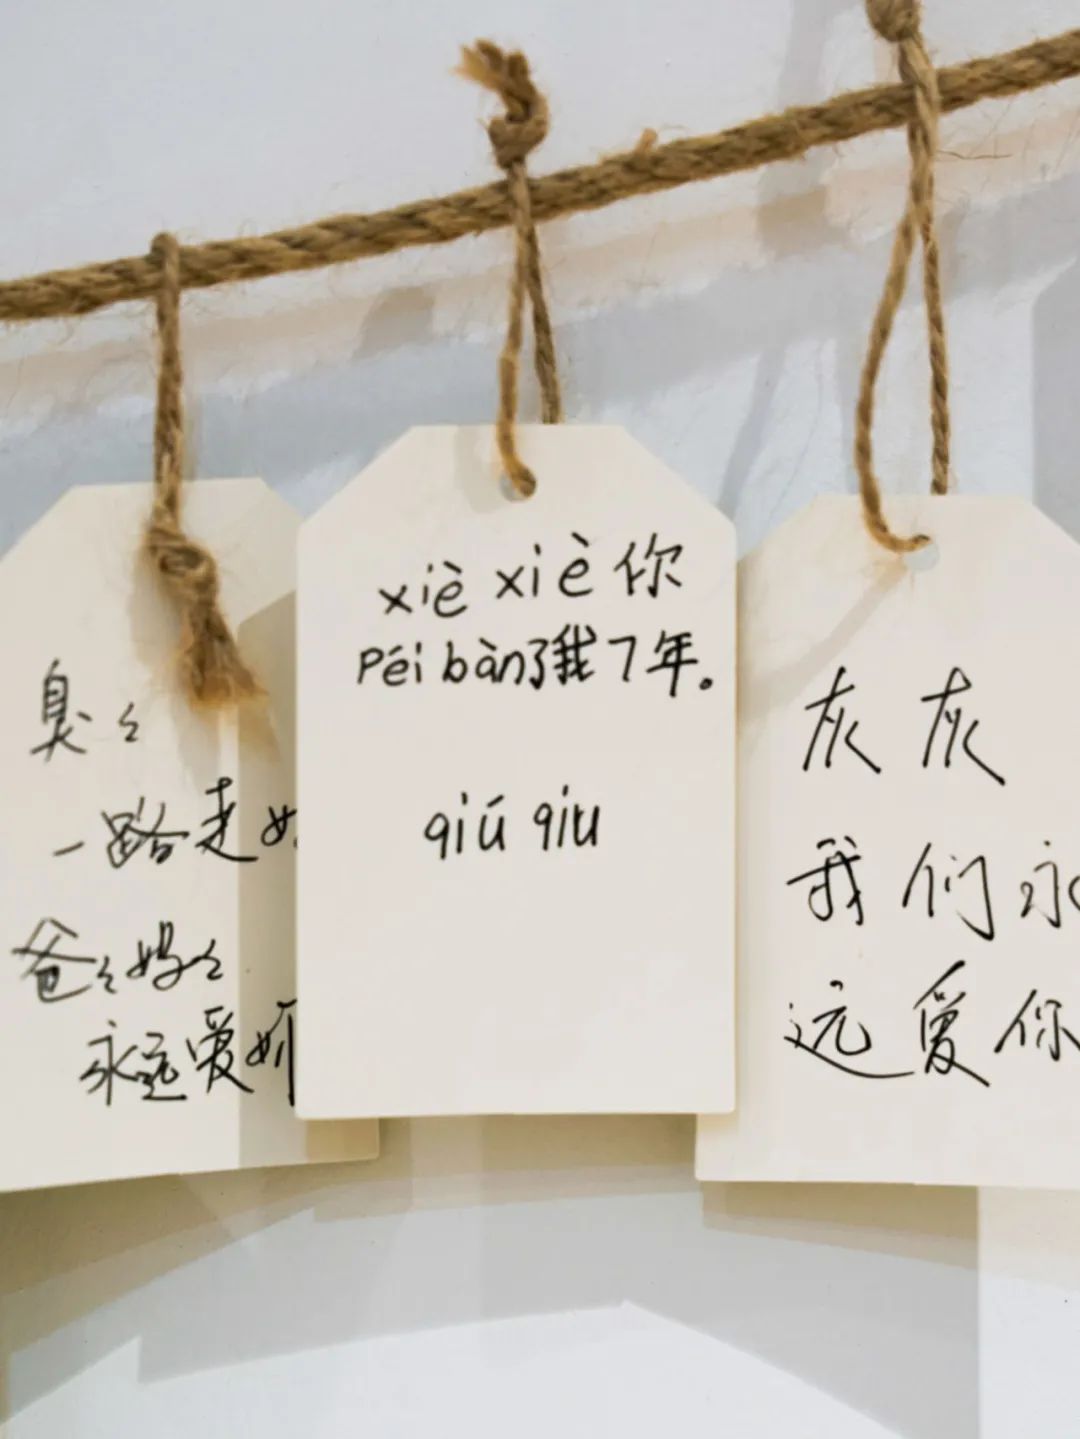 臭々
一路走好
爸々妈々
永远爱你
xiè xiè 你
Péi bàn了我7年。
qiú qiu
灰灰
我们永
远爱你